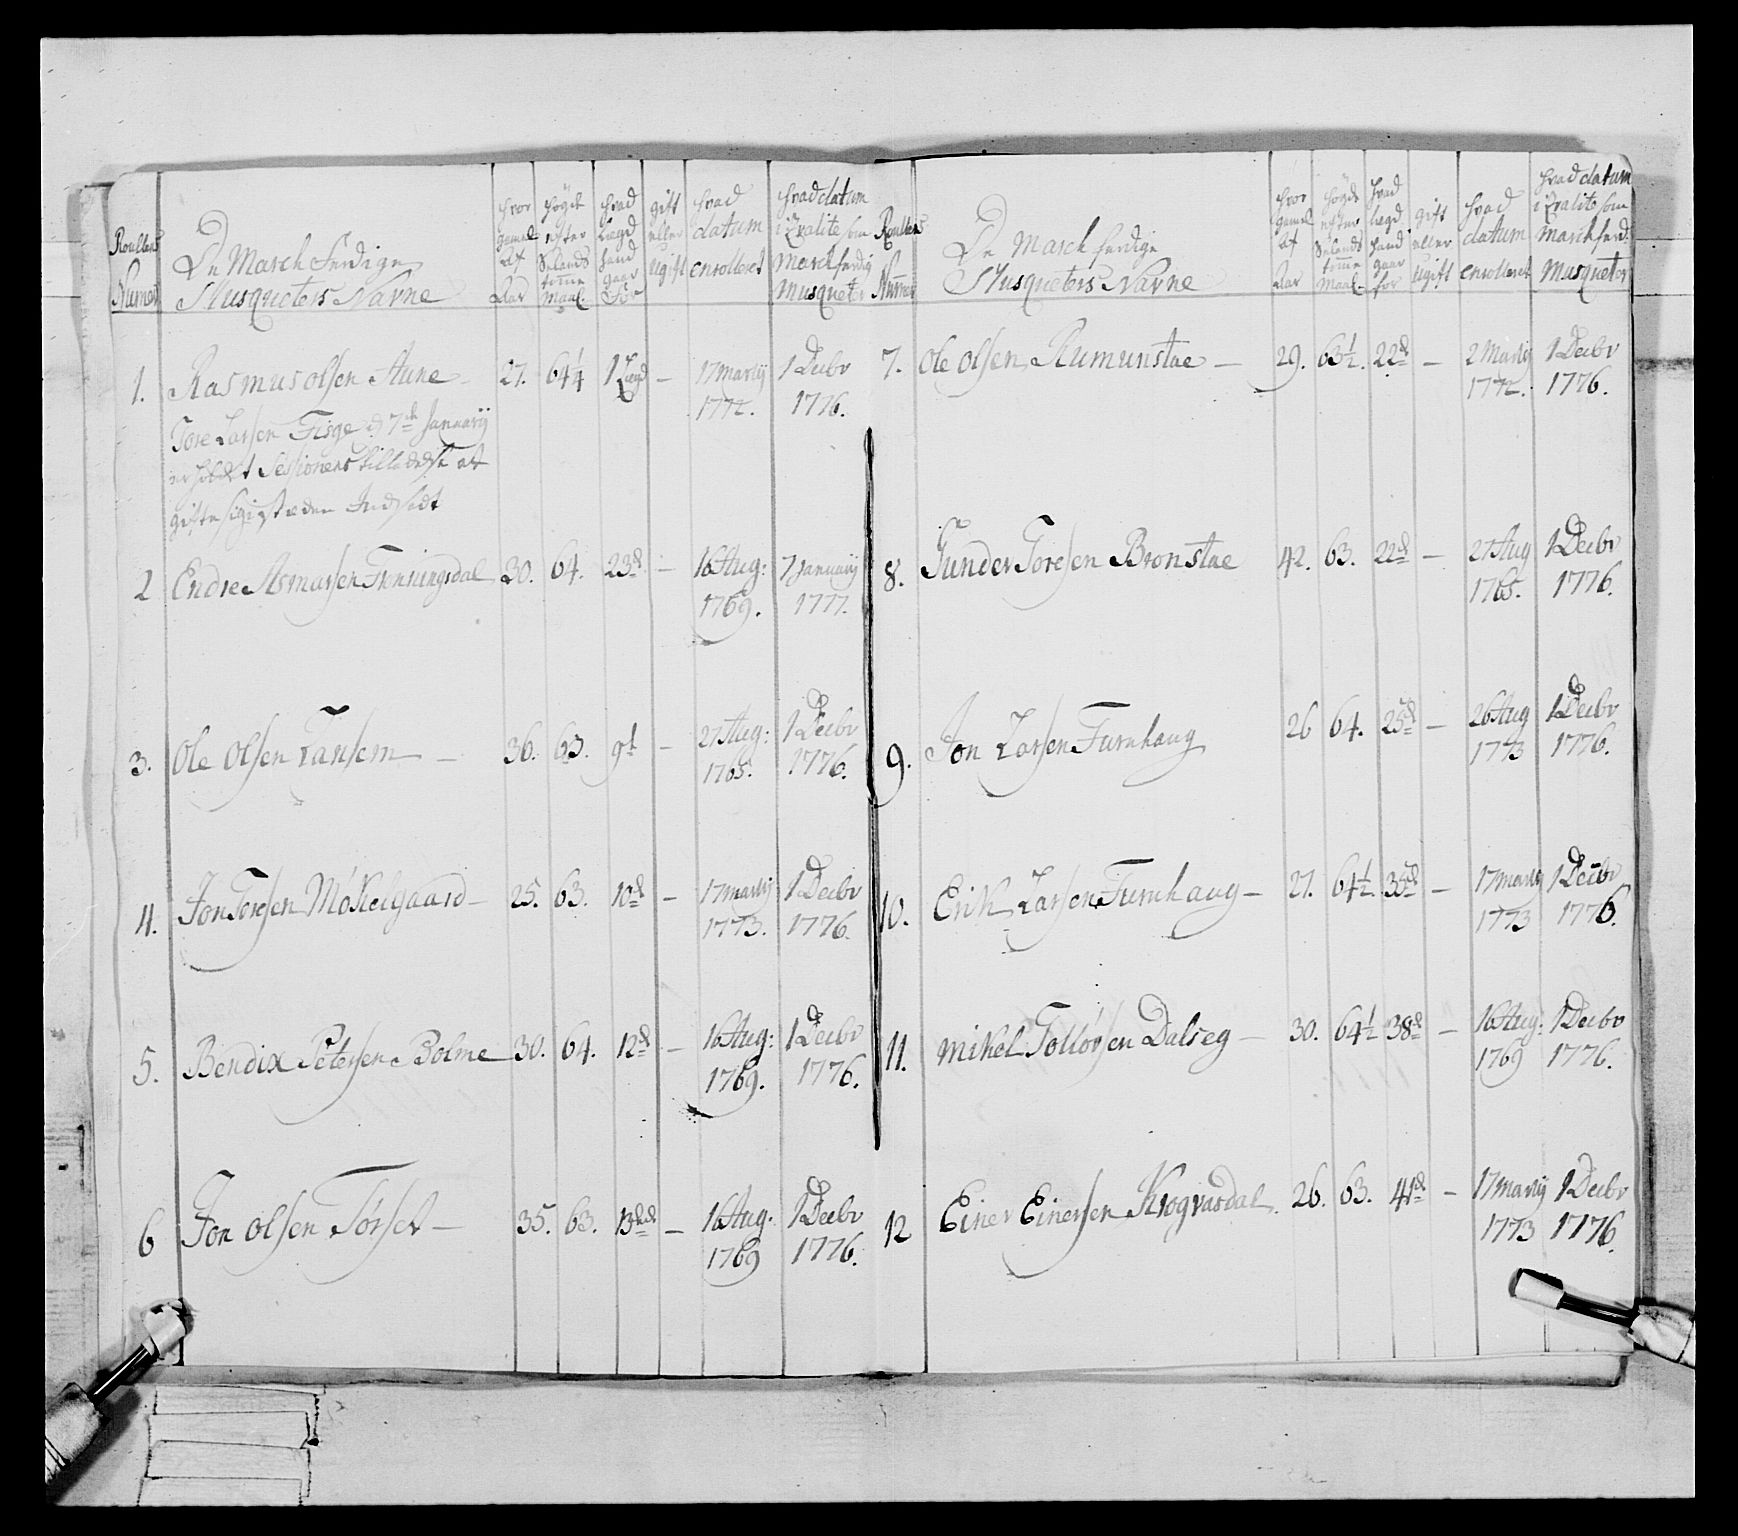 Roullens Numer | De March Ferdige Musqueters Navne | hvor gamel af Aar | høyde efter Sælands tomme Maal | hvad Lægd hand gaar For | gift eller Ugift | hvad datum enrolleret | hvad datum i Qvalite som March ferdig Musqueter
1. Rasmus olsen Aune – 27. 64 1/4 1 Lægd – 17 Martij 1772. 1 Decbr 1776.
Tore Larsen d 7de Januarij
erholdt Sessionens tilladelse at
gifte sig
2 Endre Asmarsen 30. 64. 23de – 16 Aug: 1769. 7 Januarij 1777.
3. Ole Olsen Tansem – 36. 63. 9d – 27 Aug: 1765. 1 Decbr 1776.
4. Jon Toresen Möckelgaard – 25. 63. 10de – 17 Martij 1773. 1 Decbr 1776.
5. Bendix Petersen Bolme 30. 64. 12de – 16 Aug: 1769. 1 Decbr 1776.
6 Jon olsen Törset – 35. 63. 13de – 16 Aug: 1769 1 Decbr 1776.
Roullens Numer | De March ferdige Musqueters Navne | hvor gamel af Aar | høyde efter Sælands tomme Maal | hvad lægd hand gaar for | gift eller Ugift | hvad datum enrolleret | hvad datum i Qvalite som March ferd: Musqueter
7. Ole olsen Rumunstae – 29. 63 1/2. 22de – 2 Martij 1772. 1 Decbr 1776.
8. Gunder Toresen Bronstae 42. 63. 22de – 27 Aug 1765. 1 Decbr 1776.
9. Jon Larsen Furuhaug 26 64. 25de – 26 Aug 1773 1 Decbr 1776.
10. Erik Larsen Furuhaug – 27. 64 1/2. 35de – 17 Martij 1773 1 Decbr 1776.
11. Mikel Tollörsen Dalseg – 30. 64 1/2 38de – 16 Aug: 1769 1 Decbr 1776.
12 Einer Einersen Krogvasdal. 26. 63. 41de – 17 Martij 1773 1 Decbr 1776.